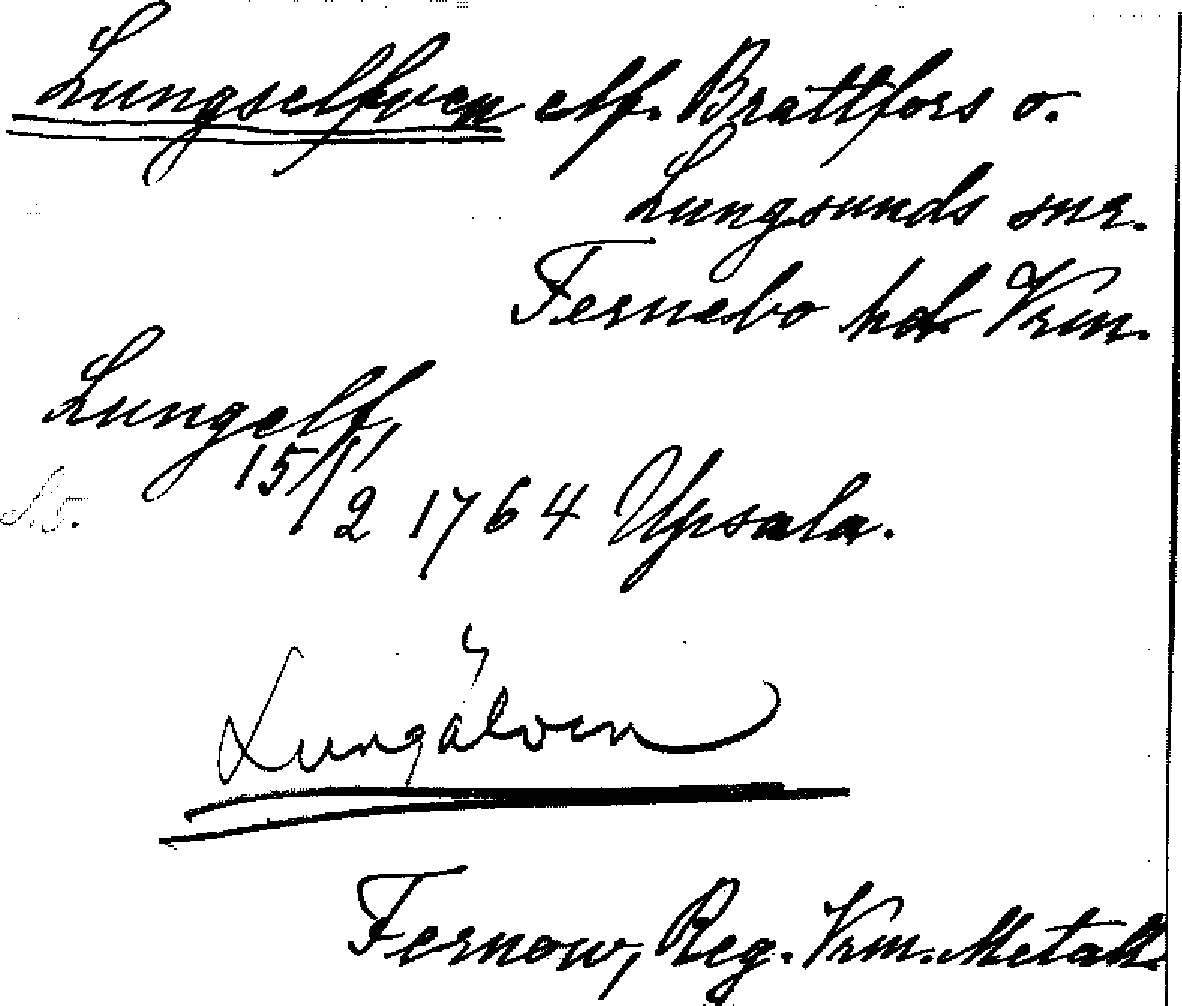 Lungselfven elf. Brattfors o.
Lungsunds snr.
Fernebo hd Vrm.
Lungelf,
15/2 1764 Upsala.
Lungälven
Fernow, Reg. Vrm. Metall.